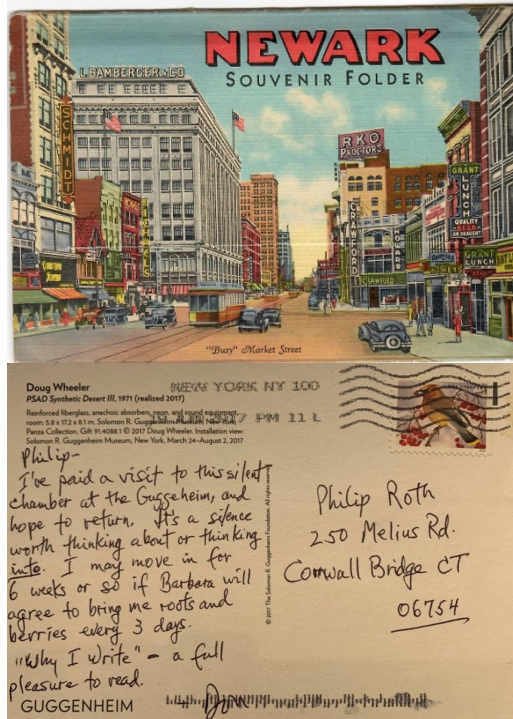 NEWARK
SOUVENIR FOLDER
L. BAMBERGER & CO
SCHMIDT
RKO
PROCTORS
GRANT
LUNCH
QUALITY
BEER
CRAWFORD
HOWARD
CRAWFORD
GRANT
LUNCH
"Busy" Market Street
Doug Wheeler
PSAD Synthetic Desert III, 1971 (realized 2017)
Reinforced fiberglass, anechoic absorbers, neon, and sound equipment,
room: 5.8 x 17.2 x 8.1 m. Solomon R. Guggenheim Museum, New York,
Panza Collection, Gift 91.4088.1 © 2017 Doug Wheeler. Installation view:
Solomon R. Guggenheim Museum, New York, March 24–August 2, 2017
NEW YORK NY 100
PM 11 L
Philip–
I've paid a visit to this silent
chamber at the Guggeheim, and
hope to return. It's a silence
worth thinking about or thinking
into. I may move in for
6 weeks or so if Barbara will
agree to bring me roots and
berries every 3 days.
"Why I Write" – a full
pleasure to read.
Don
GUGGENHEIM
© 2017 The Solomon R. Guggenheim Foundation. All rights reserved.
Philip Roth
250 Melius Rd.
Cornwall Bridge CT
06754